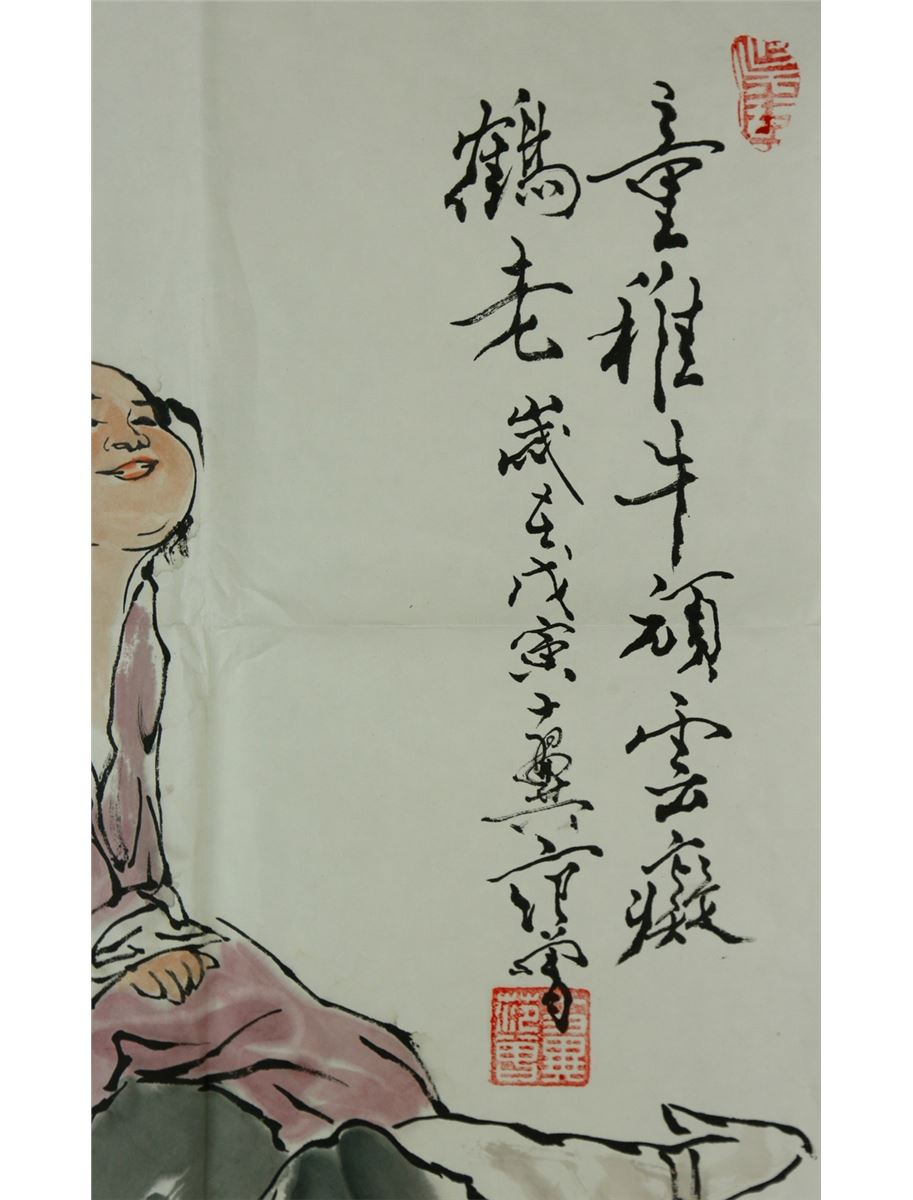 童稚牛頑雲癡
鶴老 歲在戊寅十翼范曾